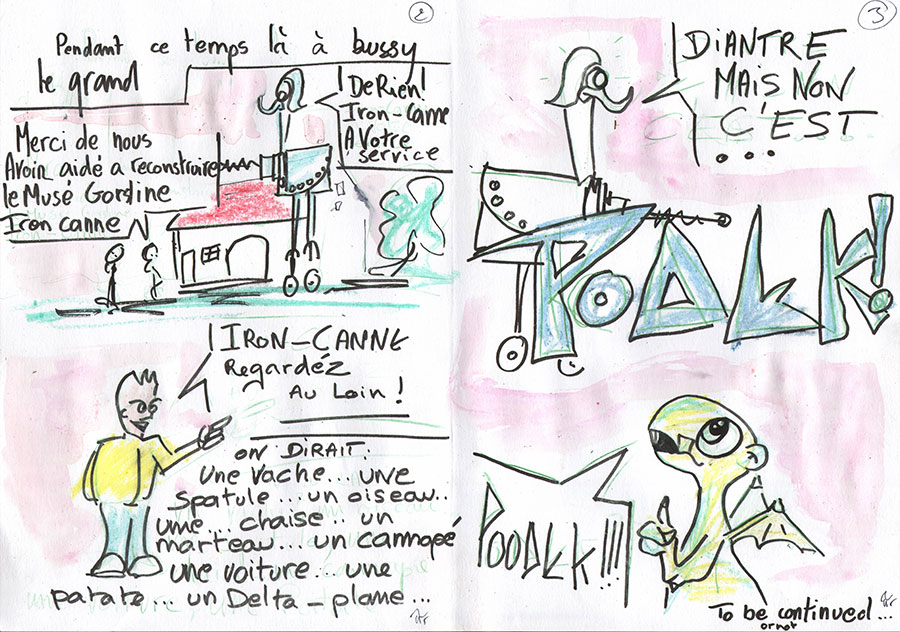 2
Pendant ce temps là à bussy
le grand
De Rien!
Iron-Canne
A Votre
service
Merci de nous
Avoir aidé a reconstruire
le Musé Gorgine
Iron canne
IRON-CANNE
Regardéz
Au Loin !
ON DIRAIT.
Une vache... UNE
Spatule... un oiseau..
ume... chaise.. un
marteau... un camnopé
une voiture... une
patate... un Delta_plame...
3
DIANTRE
MAIS NON
C'EST
...
POALK!
POODLK!!!
To be continued...
or not